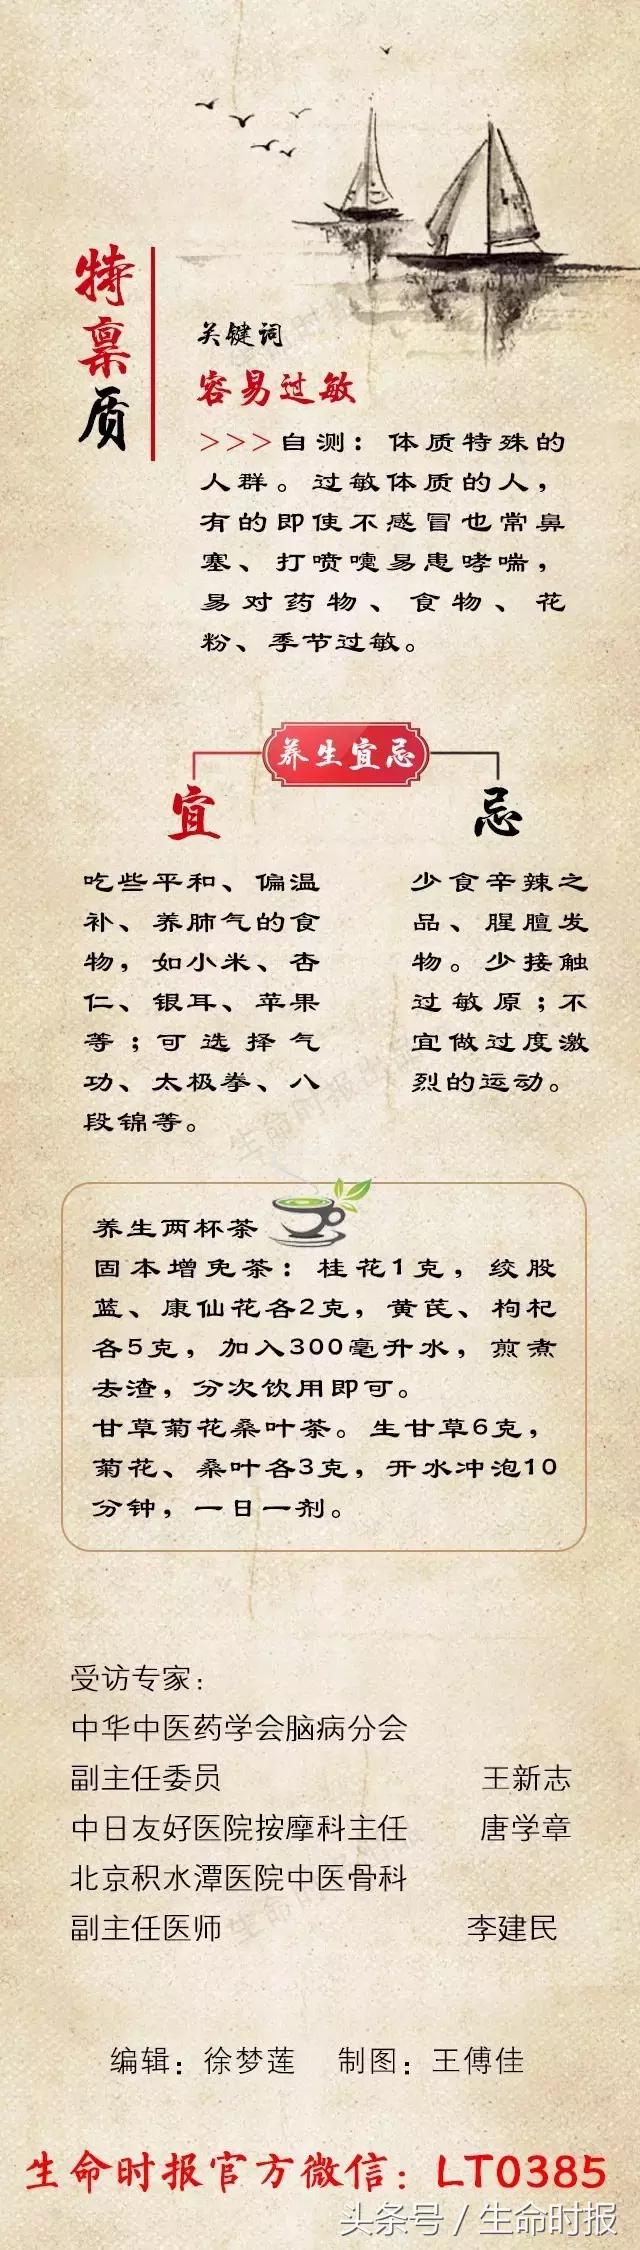 特禀质
关键词
容易过敏
>>>自测：体质特殊的
人群。过敏体质的人，
有的即使不感冒也常鼻
塞、打喷嚏易患哮喘，
易对药物、食物、花
粉、季节过敏。
养生宜忌
宜
吃些平和、偏温
补、养肺气的食
物，如小米、杏
仁、银耳、苹果
等；可选择气
功、太极拳、八
段锦等。
忌
少食辛辣之
品、腥膻发
物。少接触
过敏原；不
宜做过度激
烈的运动。
养生两杯茶
固本增免茶：桂花1克，绞股
蓝、康仙花各2克，黄芪、枸杞
各5克，加入300毫升水，煎煮
去渣，分次饮用即可。
甘草菊花桑叶茶。生甘草6克，
菊花、桑叶各3克，开水冲泡10
分钟，一日一剂。
受访专家：
中华中医药学会脑病分会
副主任委员 王新志
中日友好医院按摩科主任 唐学章
北京积水潭医院中医骨科
副主任医师 李建民
编辑：徐梦莲 制图：王傅佳
生命时报官方微信：LT0385
头条号 / 生命时报